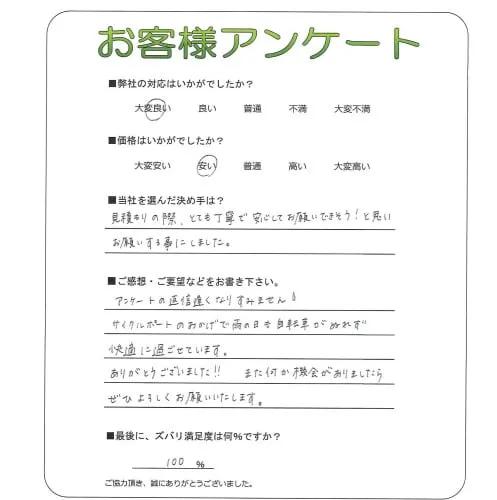 お客様アンケート
■弊社の対応はいかがでしたか?
大変良い 良い 普通 不満 大変不満
■価格はいかがでしたか?
大変安い 安い 普通 高い 大変高い
■当社を選んだ決め手は?
見積もりの際、とても丁寧で安心してお願いできそう!と思い
お願いする事にしました。
■ご感想・ご要望などをお書き下さい。
アンケートの返信遅くなりすみません!
サイクルポートのおかげで雨の日も自転車がぬれず
快適に過ごせています。
ありがとうございました!! また何か機会がありましたら
ぜひよろしくお願いいたします。
■最後に、ズバリ満足度は何%ですか?
100 %
ご協力頂き、誠にありがとうございました。